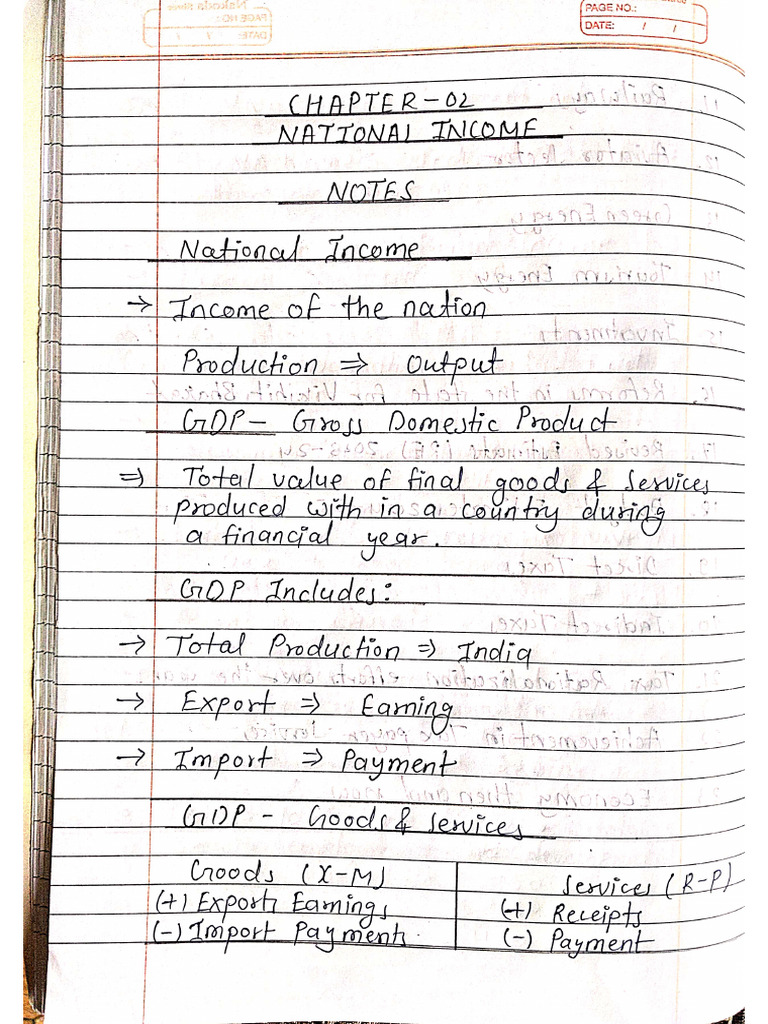 PAGE NO.:
DATE: / /
CHAPTER-02
NATIONAL INCOME
NOTES
National Income
→ Income of the nation
Production ⇒ Output
GDP- Gross Domestic Product
⇒ Total value of final goods & services
produced with in a country during
a financial year.
GDP Includes:
→ Total Production ⇒ India
→ Export ⇒ Earning
→ Import ⇒ Payment
GDP - Goods & services
Goods (X-M)
(+) Export Earnings
(-) Import Payments.
Services (R-P)
(+) Receipts
(-) Payment